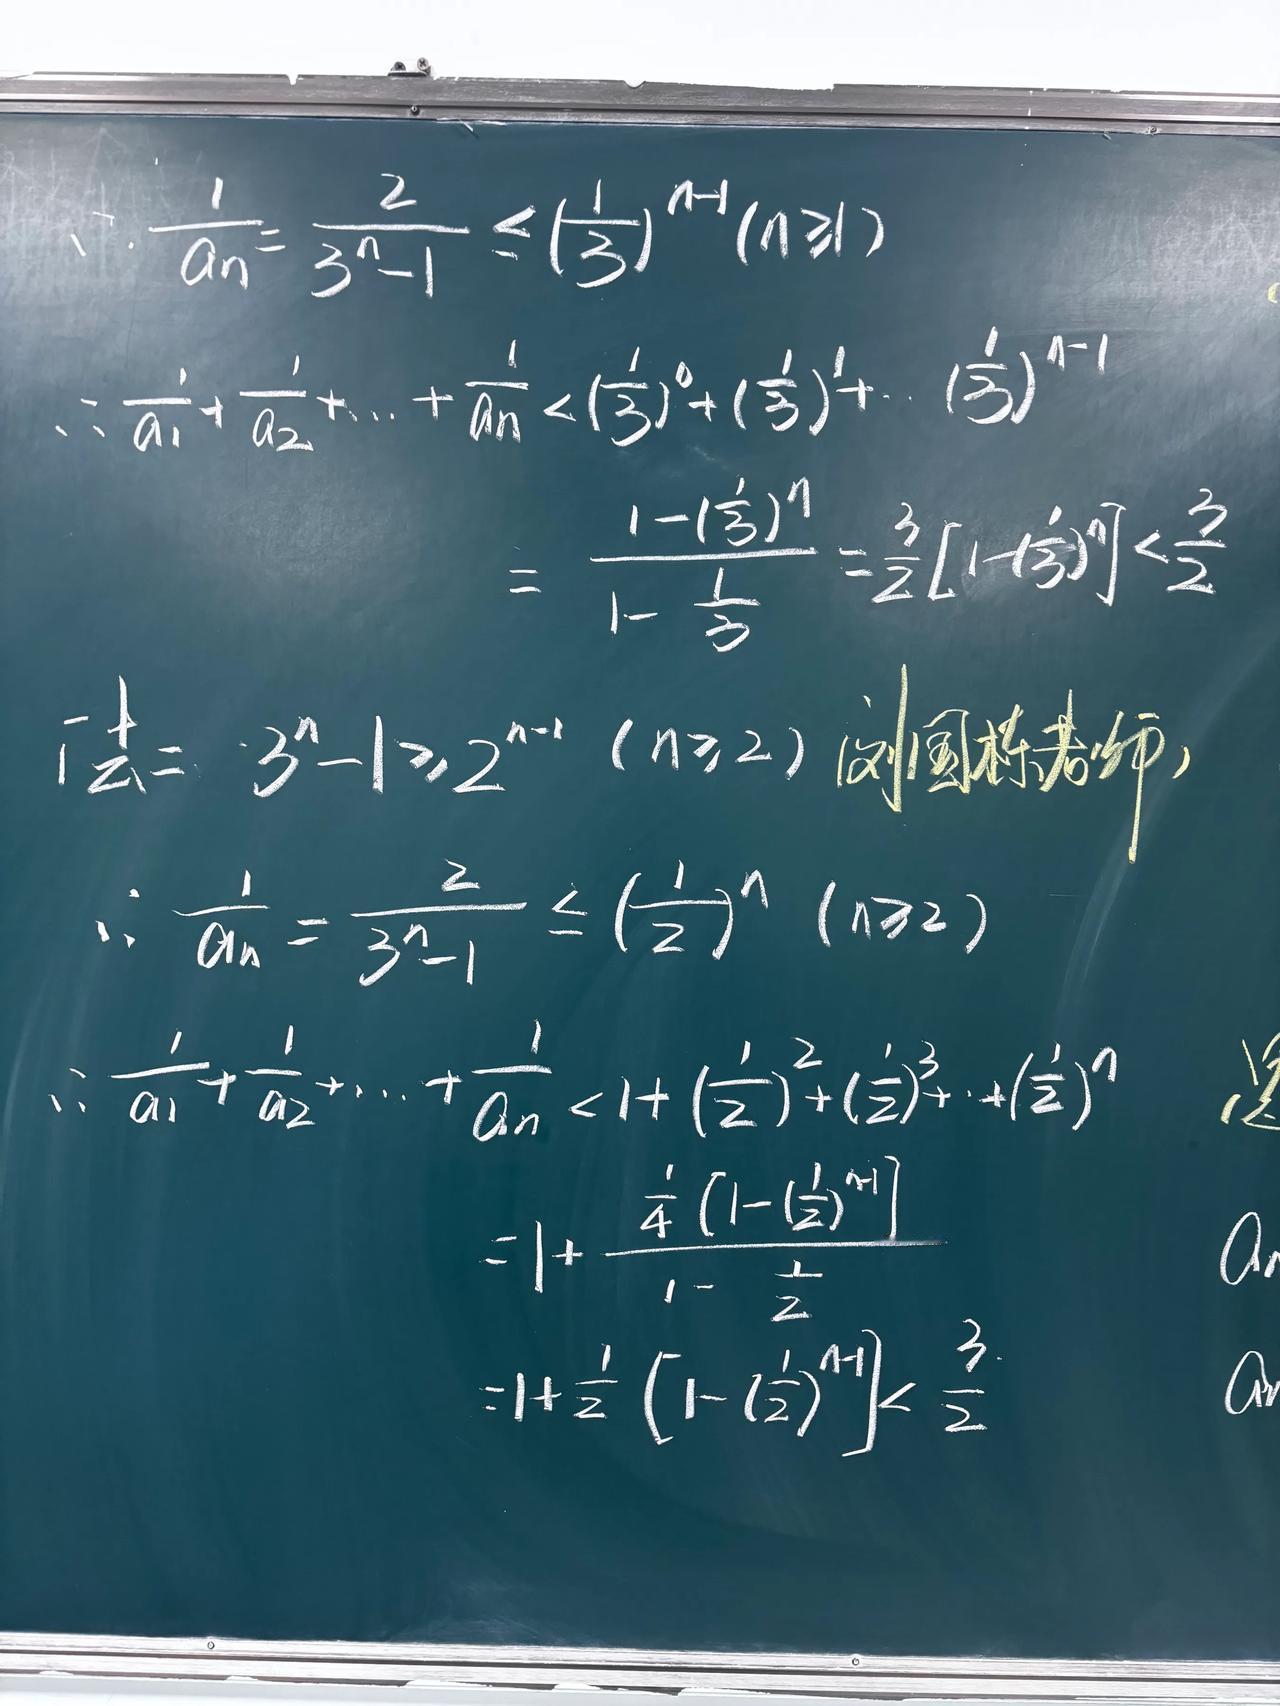 ∴ 1/an = 2/(3^n-1) ≤ (1/3)^(n-1) (n≥1)
∴ 1/a1 + 1/a2 + … + 1/an < (1/3)^0 + (1/3)^1 + … (1/3)^(n-1)
= (1-(1/3)^n)/(1-1/3) = 3/2[1-(1/3)^n] < 3/2
法二 3^n-1≥2^(n-1) (n≥2) 刘国栋老师,
∴ 1/an = 2/(3^n-1) ≤ (1/2)^n (n≥2)
∴ 1/a1 + 1/a2 + … + 1/an < 1+(1/2)^2+(1/2)^3+…+(1/2)^n
=1+ (1/4[1-(1/2)^(n-1)])/(1-1/2)
an
=1+1/2[1-(1/2)^(n-1)]< 3/2
an